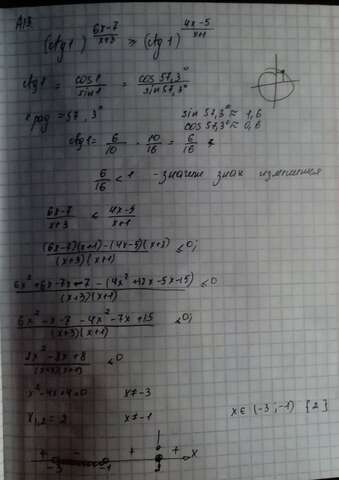 A13
(ctg 1)^((6x-7)/(x+3)) ≥ (ctg 1)^((4x-5)/(x+1))
ctg 1 = cos 1 / sin 1 = cos 57,3° / sin 57,3°
1 рад = 57,3°
sin 57,3° ≈ 1,6
cos 57,3° ≈ 0,6
ctg 1 = 6/10 · 10/16 = 6/16
6/16 < 1 - значит знак изменится
(6x-7)/(x+3) ≤ (4x-5)/(x+1)
((6x-7)(x+1)-(4x-5)(x+3))/((x+3)(x+1)) ≤ 0;
(6x²+6x-7x-7-(4x²+12x-5x-15))/((x+3)(x+1)) ≤ 0
(6x²-x-7-4x²-7x+15)/((x+3)(x+1)) ≤ 0;
(2x²-8x+8)/((x+3)(x+1)) ≤ 0
x²-4x+4=0 x≠-3
x₁,₂=2 x≠-1
x∈(-3;-1) {2}
+ - + +
-3 -1 2 x